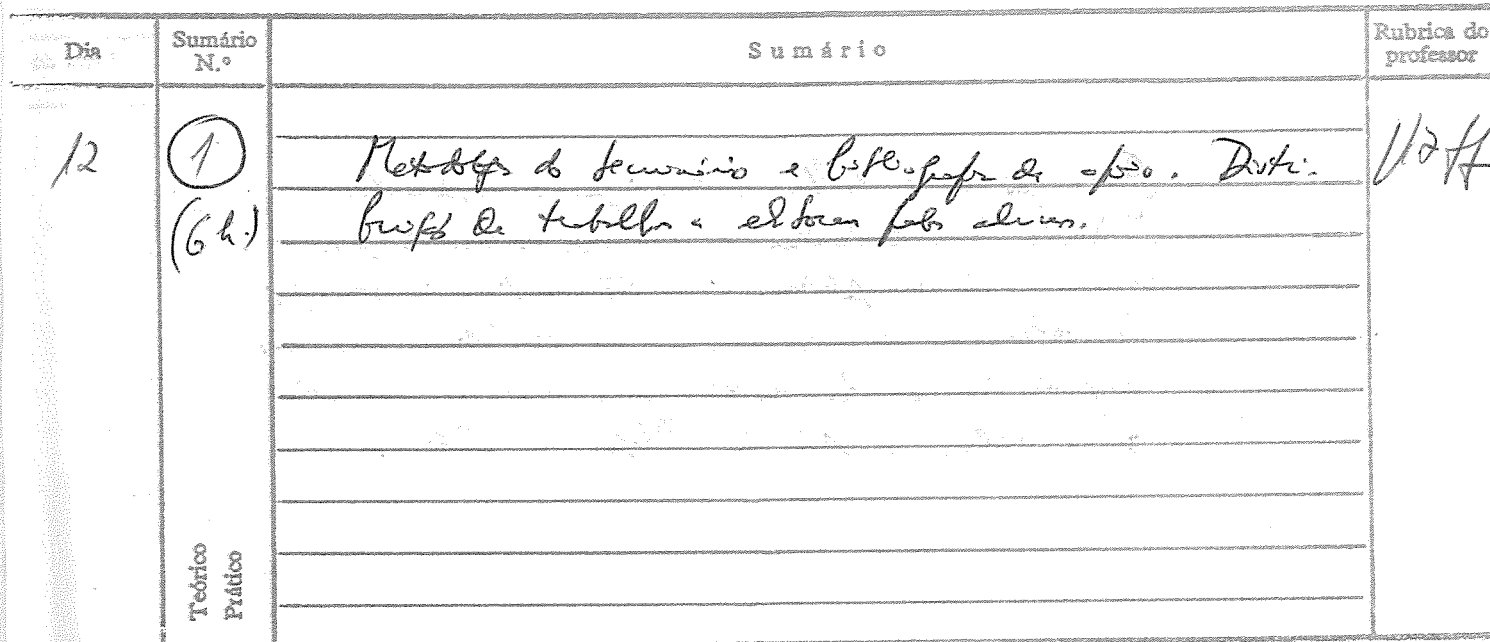 Dia
Sumário N.º
Sumário
Rubrica do professor
12
1
(6 h.)
Metodologia do seminário e bibliografia de apoio. Distri-
buição de trabalhos a elaborar pelos alunos.
Teórico
Prático